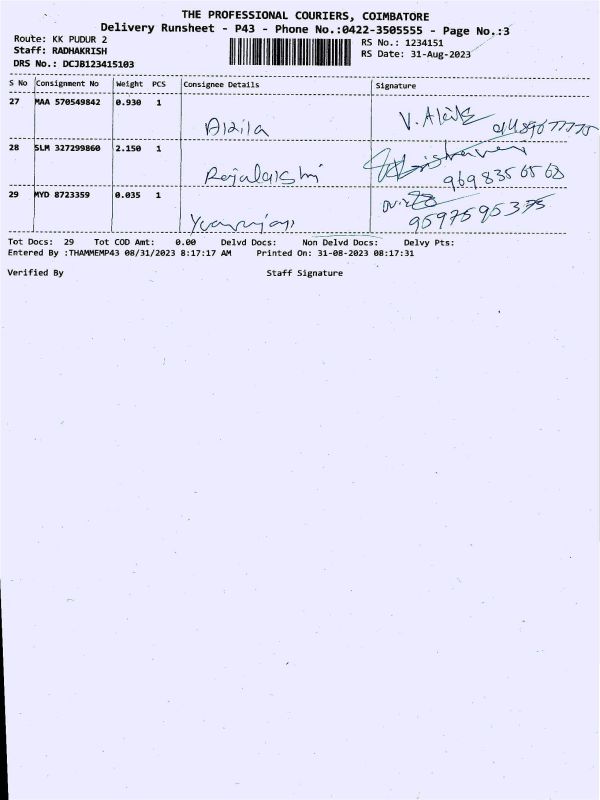 THE PROFESSIONAL COURIERS, COIMBATORE
Delivery Runsheet - P43 - Phone No.:0422-3505555 - Page No.:3
Route: KK PUDUR 2
RS No.: 1234151
Staff: RADHAKRISH
RS Date: 31-Aug-2023
DRS No.: DCJB123415103
S No Consignment No Weight PCS Consignee Details Signature
27 MAA 570549842 0.930 1
Akila V. Akila
28 SLM 327299860 2.150 1
Rajalakshmi 9698356568
29 MYD 8723359 0.035 1
9597595375
Tot Docs: 29 Tot COD Amt: 0.00 Delvd Docs: Non Delvd Docs: Delvy Pts:
Entered By :THAMMEMP43 08/31/2023 8:17:17 AM Printed On: 31-08-2023 08:17:31
Verified By Staff Signature